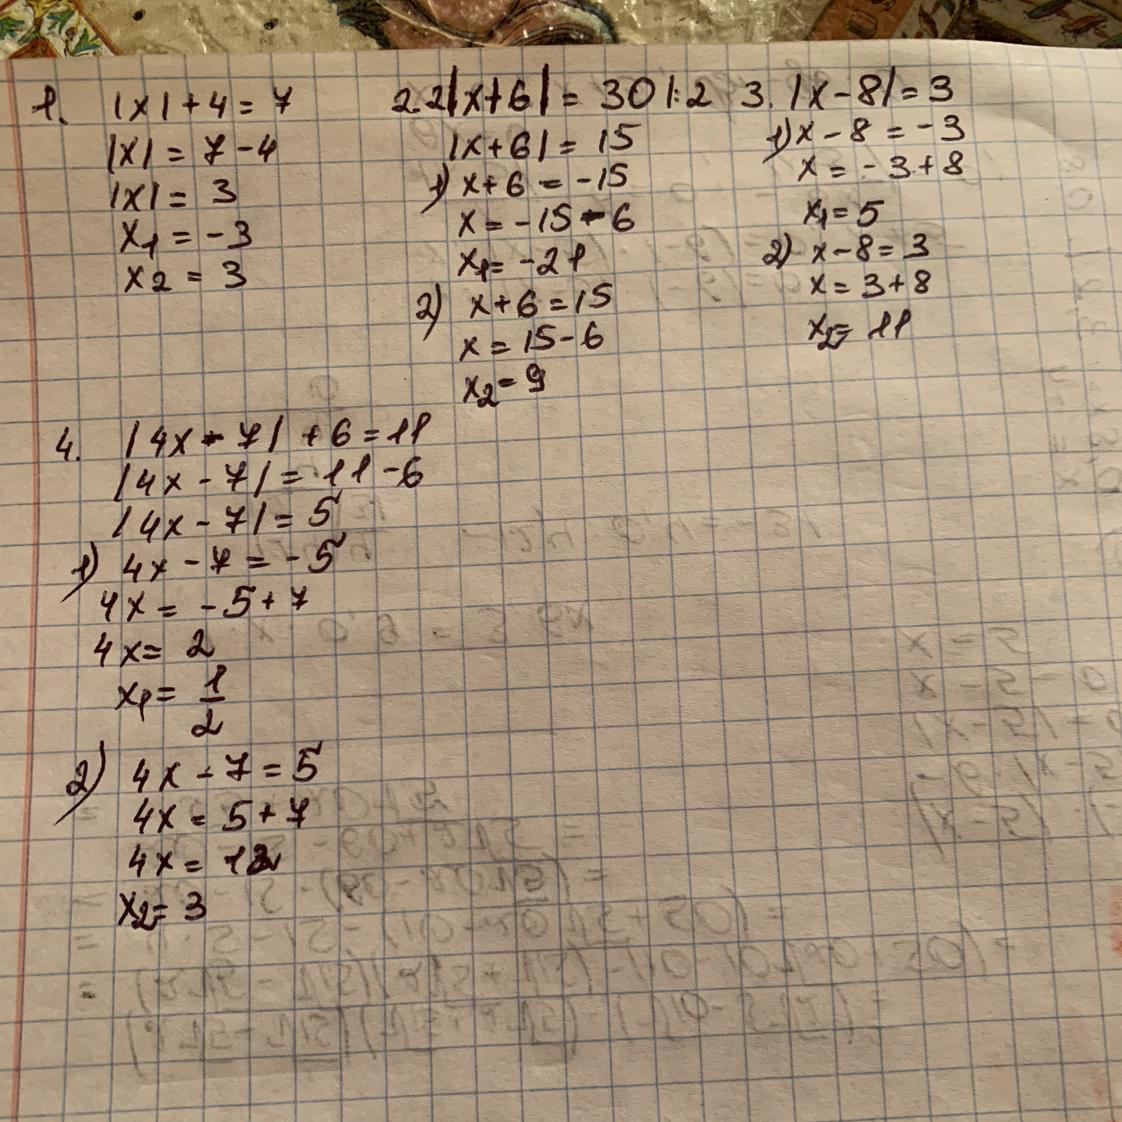 1. |x| + 4 = 7
|x| = 7 - 4
|x| = 3
x1 = -3
x2 = 3
2. 2|x+6| = 30 |:2
|x+6| = 15
1) x+6 = -15
x = -15 - 6
x1 = -21
2) x+6 = 15
x = 15 - 6
x2 = 9
3. |x-8| = 3
1) x - 8 = -3
x = -3 + 8
x1 = 5
2) x - 8 = 3
x = 3+8
x2 = 11
4. |4x - 7| + 6 = 11
|4x - 7| = 11 - 6
|4x - 7| = 5
1) 4x - 7 = -5
4x = -5 + 7
4x = 2
x1 = 1/2
2) 4x - 7 = 5
4x = 5 + 7
4x = 12
x2 = 3